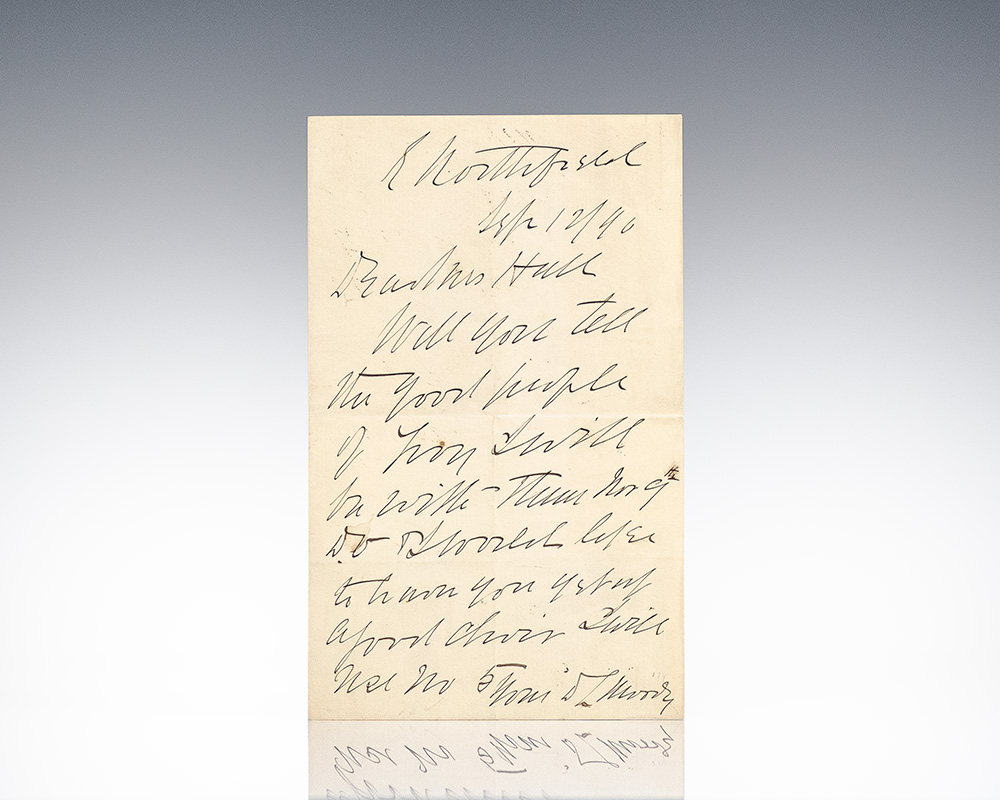 E Northfield
Sep 12/90
Dear Mrs Hall
Will you tell
the good people
of Troy I will
be with them Nov 9th
D.V. & I would like
to have you get up
a good choir I will
use No 5 Yours D L Moody